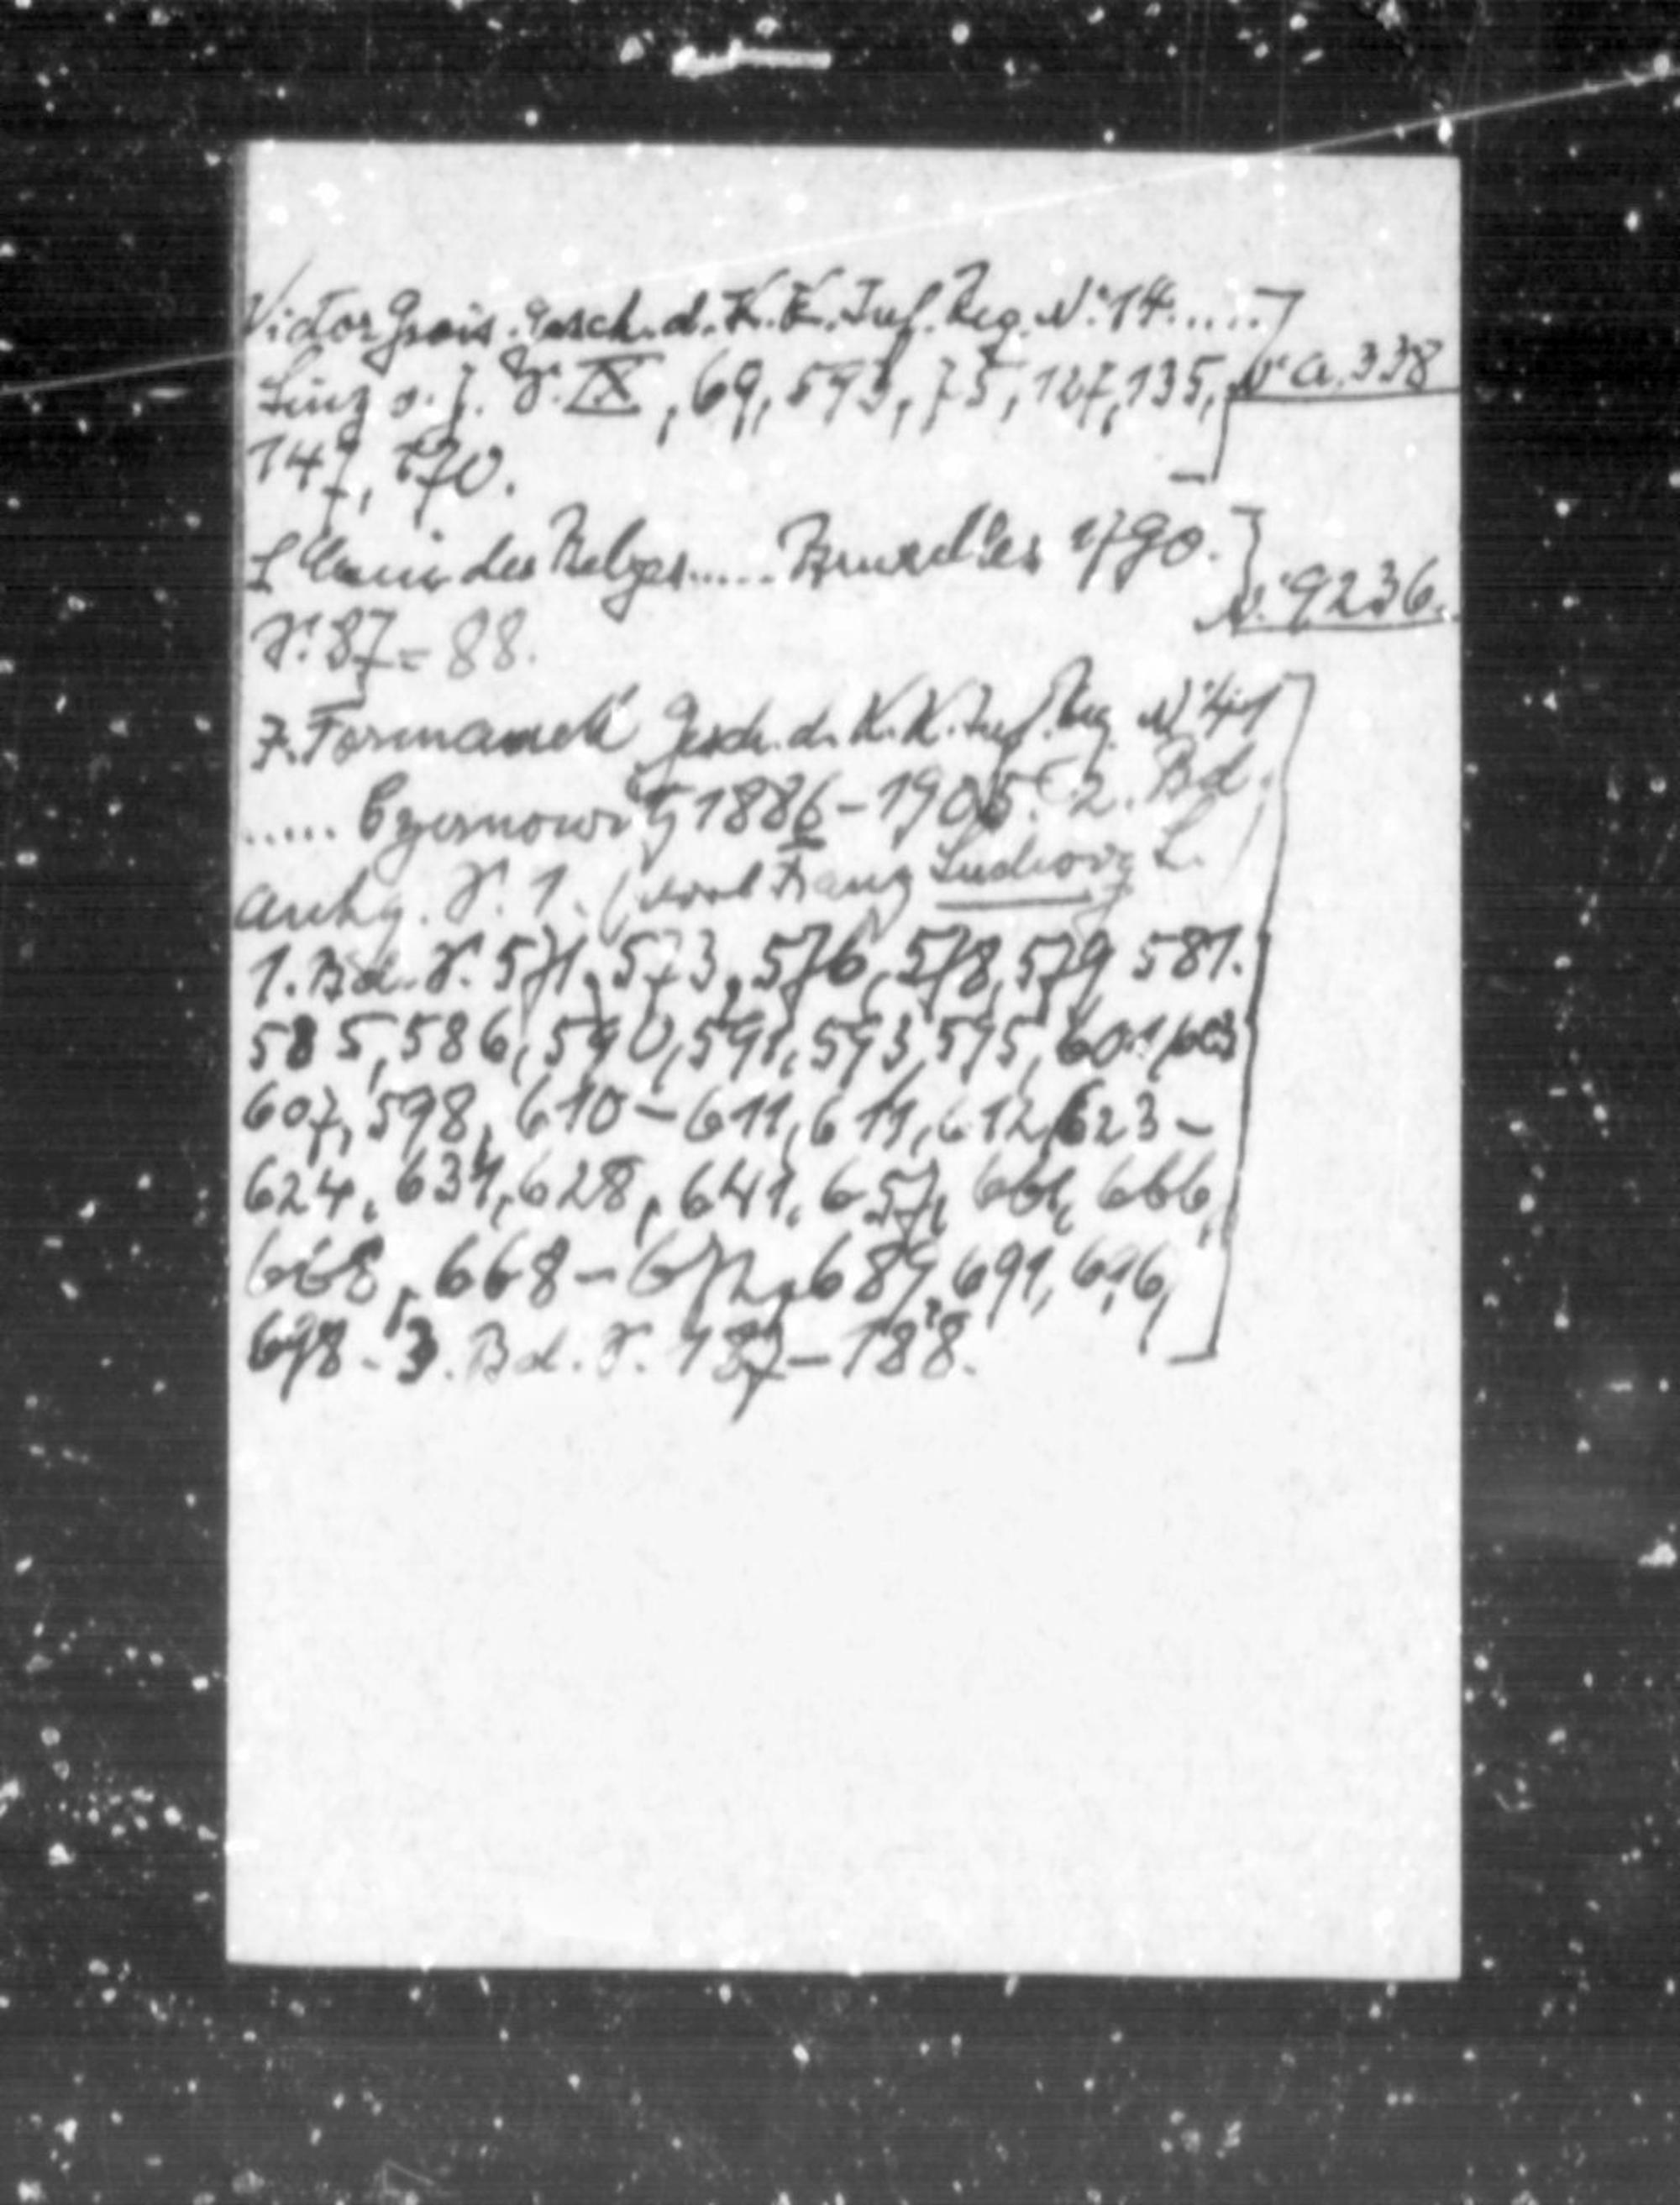 Victor Grois. Gesch. d. K. K. Inf. Reg. No 14.....
Linz o. J. S. IX, 69, 593, 75, 127, 135, No a. 338
147, 170.
L'Ami des Belges..... Bruxelles 1790.
No 9236.
S. 87 = 88.
J. Formanek Gesch. d. K. K. Inf. Reg. No 41
..... Czernowitz 1886-1905. 2. Bd.
S. 1. ( Franz Ludwig L.
1. Bd. S. 571, 573, 576, 578, 579 581.
585, 586, 590, 591, 593, 595, 601, 603
607, 598, 610-611, 611, 612, 623-
624, 631, 628, 641, 657, 661, 666,
668, 668-672, 689, 691, 696,
698. 3. Bd. S. 187-188.